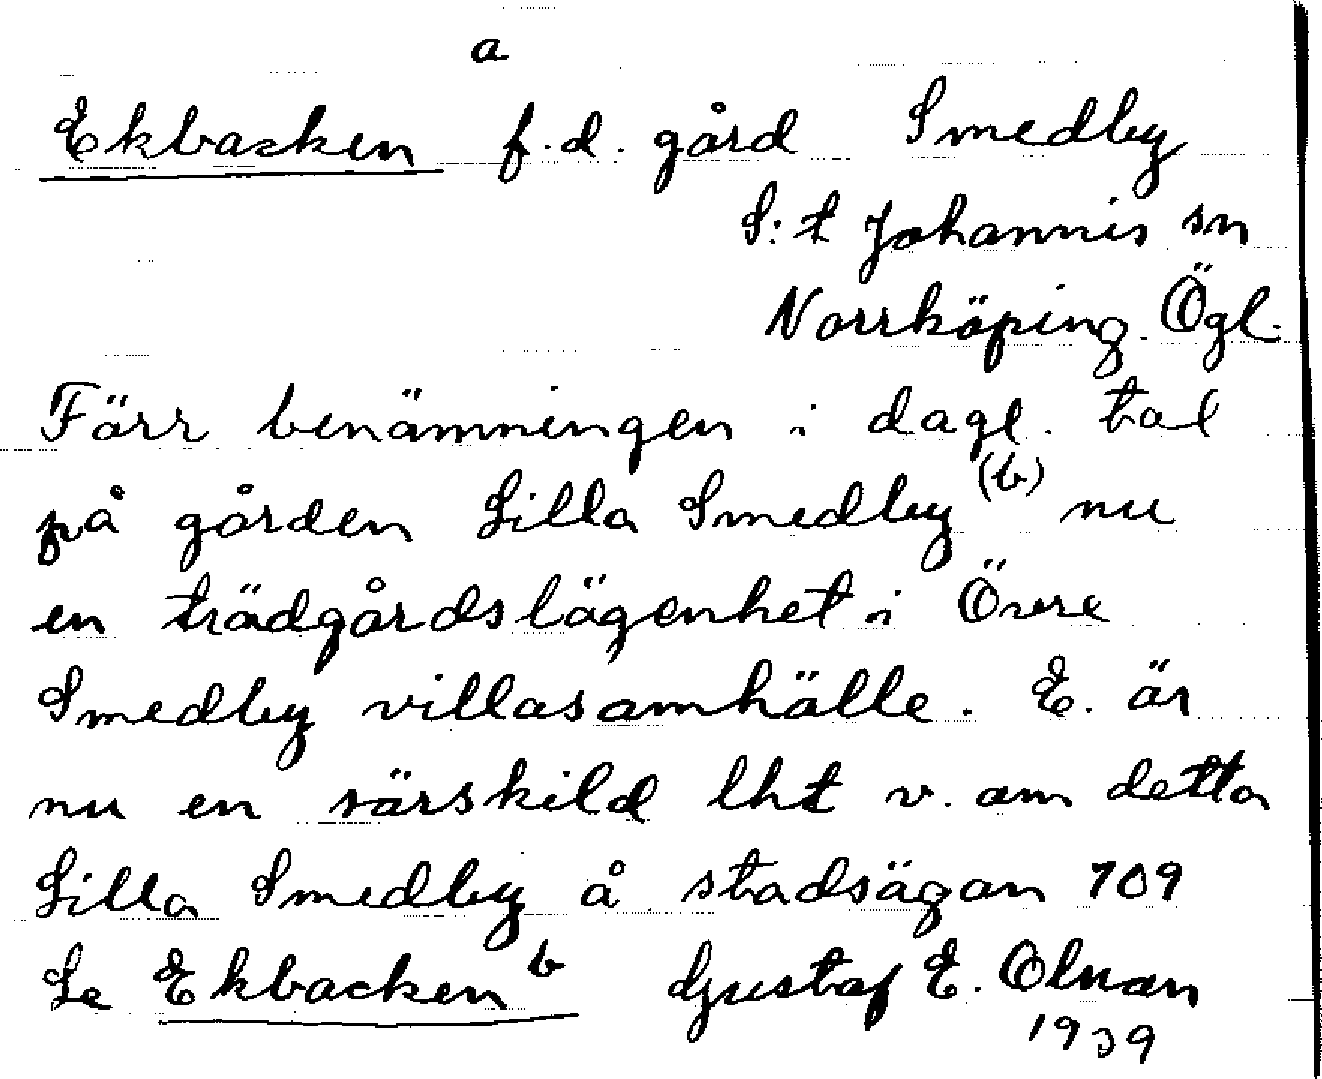 a
Ekbacken f.d. gård Smedby
S:t Johannis sn
Norrköping. Ögl.
Förr benämningen i dagl. tal
på gården Lilla Smedby (b) nu
en trädgårdslägenhet i Övre
Smedby villasamhälle. E. är
nu en särskild lht v. om detta
Lilla Smedby å stadsägan 709
Se Ekbacken b Gustaf E. Olman
1939